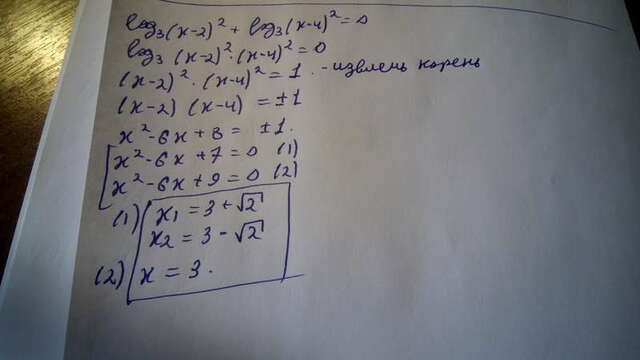 log₃(x-2)² + log₃(x-4)² = 0
log₃ (x-2)² · (x-4)² = 0
(x-2)² · (x-4)² = 1 . - извлечь корень
(x-2) (x-4) = ±1
x² - 6x + 8 = ±1.
x² - 6x + 7 = 0 (1)
x² - 6x + 9 = 0 (2)
(1) x₁ = 3 + √2
x₂ = 3 - √2
(2) x = 3.